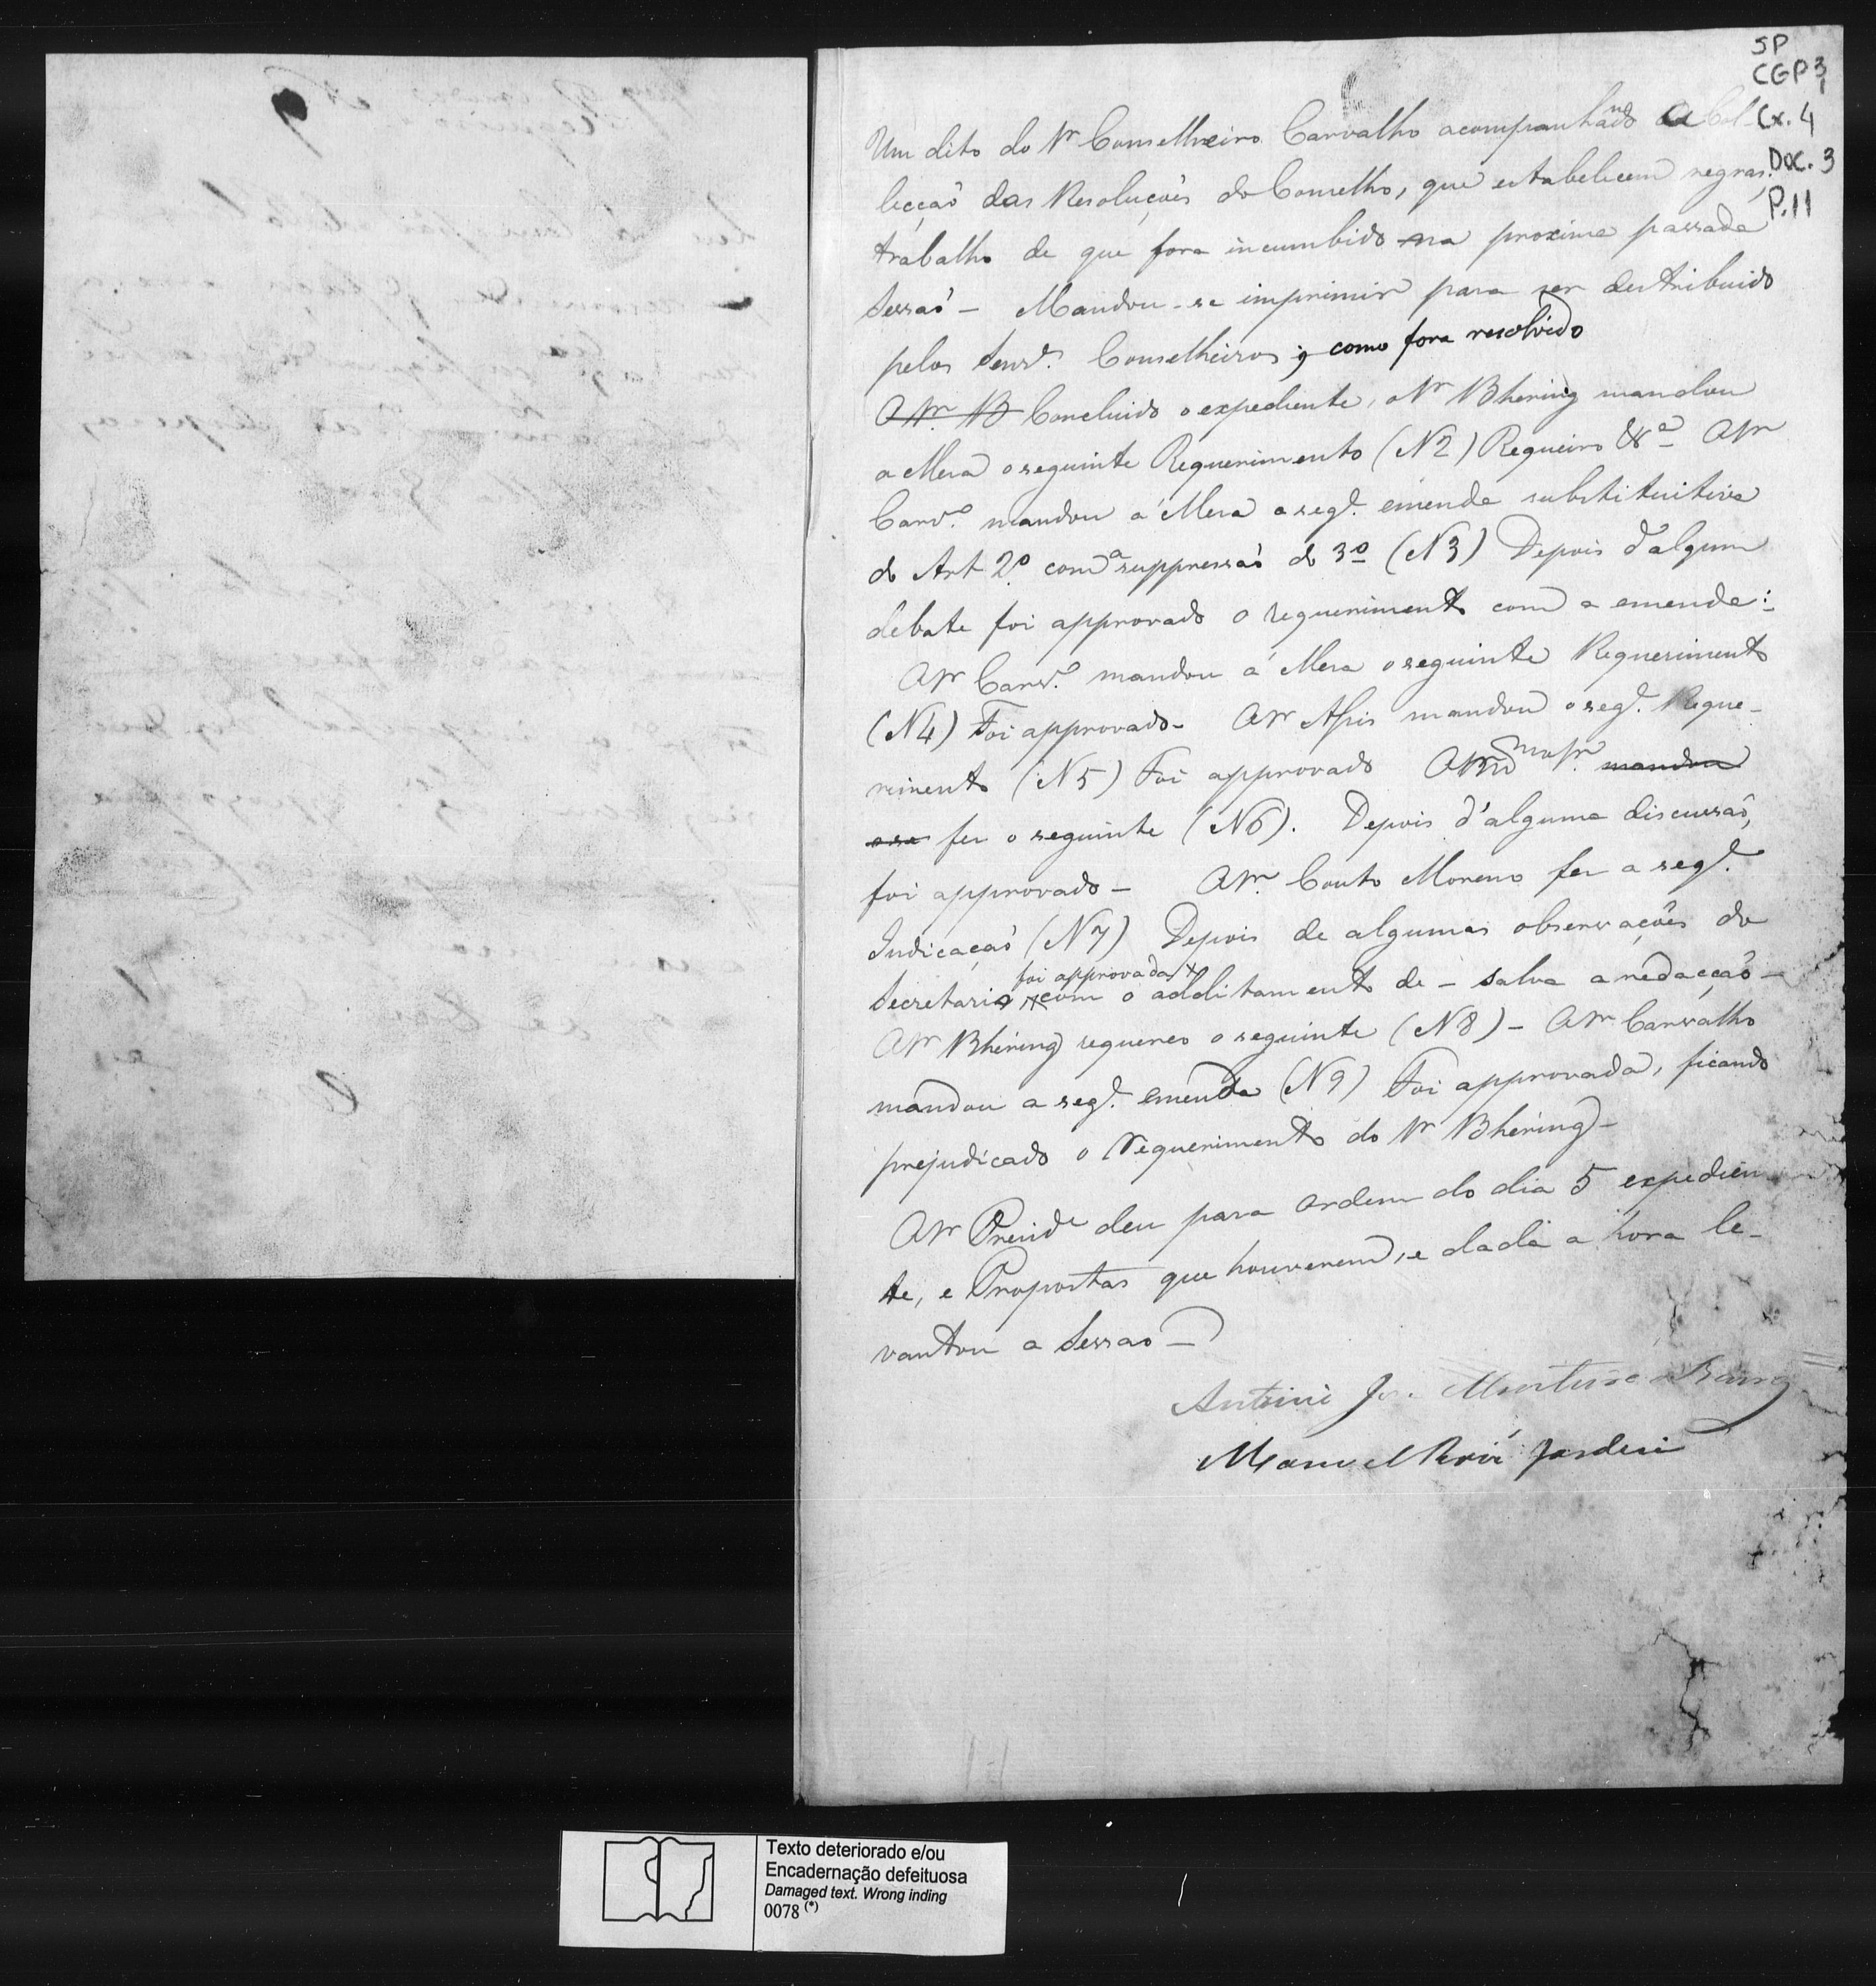 SP
CGP 3
Cx. 4
Doc. 3
P. 11
Um dito do Sr Conselheiro Carvalho acompanhando a Col
lecçaõ das Resoluções do Conselho, que estabelecem regras,
trabalho de que fora incumbido na proxima passada
Sessaõ - Mandou-se imprimir para ser destribuido
pelos Senrs. Conselheiros, como fora resolvido
O Sr. B Concluido o expediente, o Sr Bhering mandou
a Mesa o seguinte Requerimento (N 2) Requeiro &a O Sr
Carvo. mandou á Mesa a sege. emenda substitutiva
do Art 2º com a suppressaõ do 3º (N 3) Depois d'algum
debate foi approvado o requerimento com a emenda:
O Sr Carvo. mandou á Mesa o seguinte Requerimento
(N 4) Foi approvado - O Sr mandou o sege. Reque-
rimento (N 5) Foi approvado O mandou
fez o seguinte (N 6). Depois d'alguma discussaõ,
foi approvado - O Sr. Couto Moreno fez a sege.
Indicaçaõ (N 7) Depois de algumas observações do
Secretario foi approvada com o additamento de - salva a redacçaõ -
O Sr Bhering requereo o seguinte (N 8) - O Sr Carvalho
mandou a sege. emenda (N 9) Foi approvada, ficando
prejudicado o Requerimento do Sr Bhering -
O Sr Preside deu para ordem do dia 5 expedien
te, e Propostas que houverem, e dada a hora le-
vantou a Sessao -
Antonio José Monteiro de Barros
Manuel José Jardim
Texto deteriorado e/ou
Encadernação defeituosa
Damaged text. Wrong inding
0078 (*)